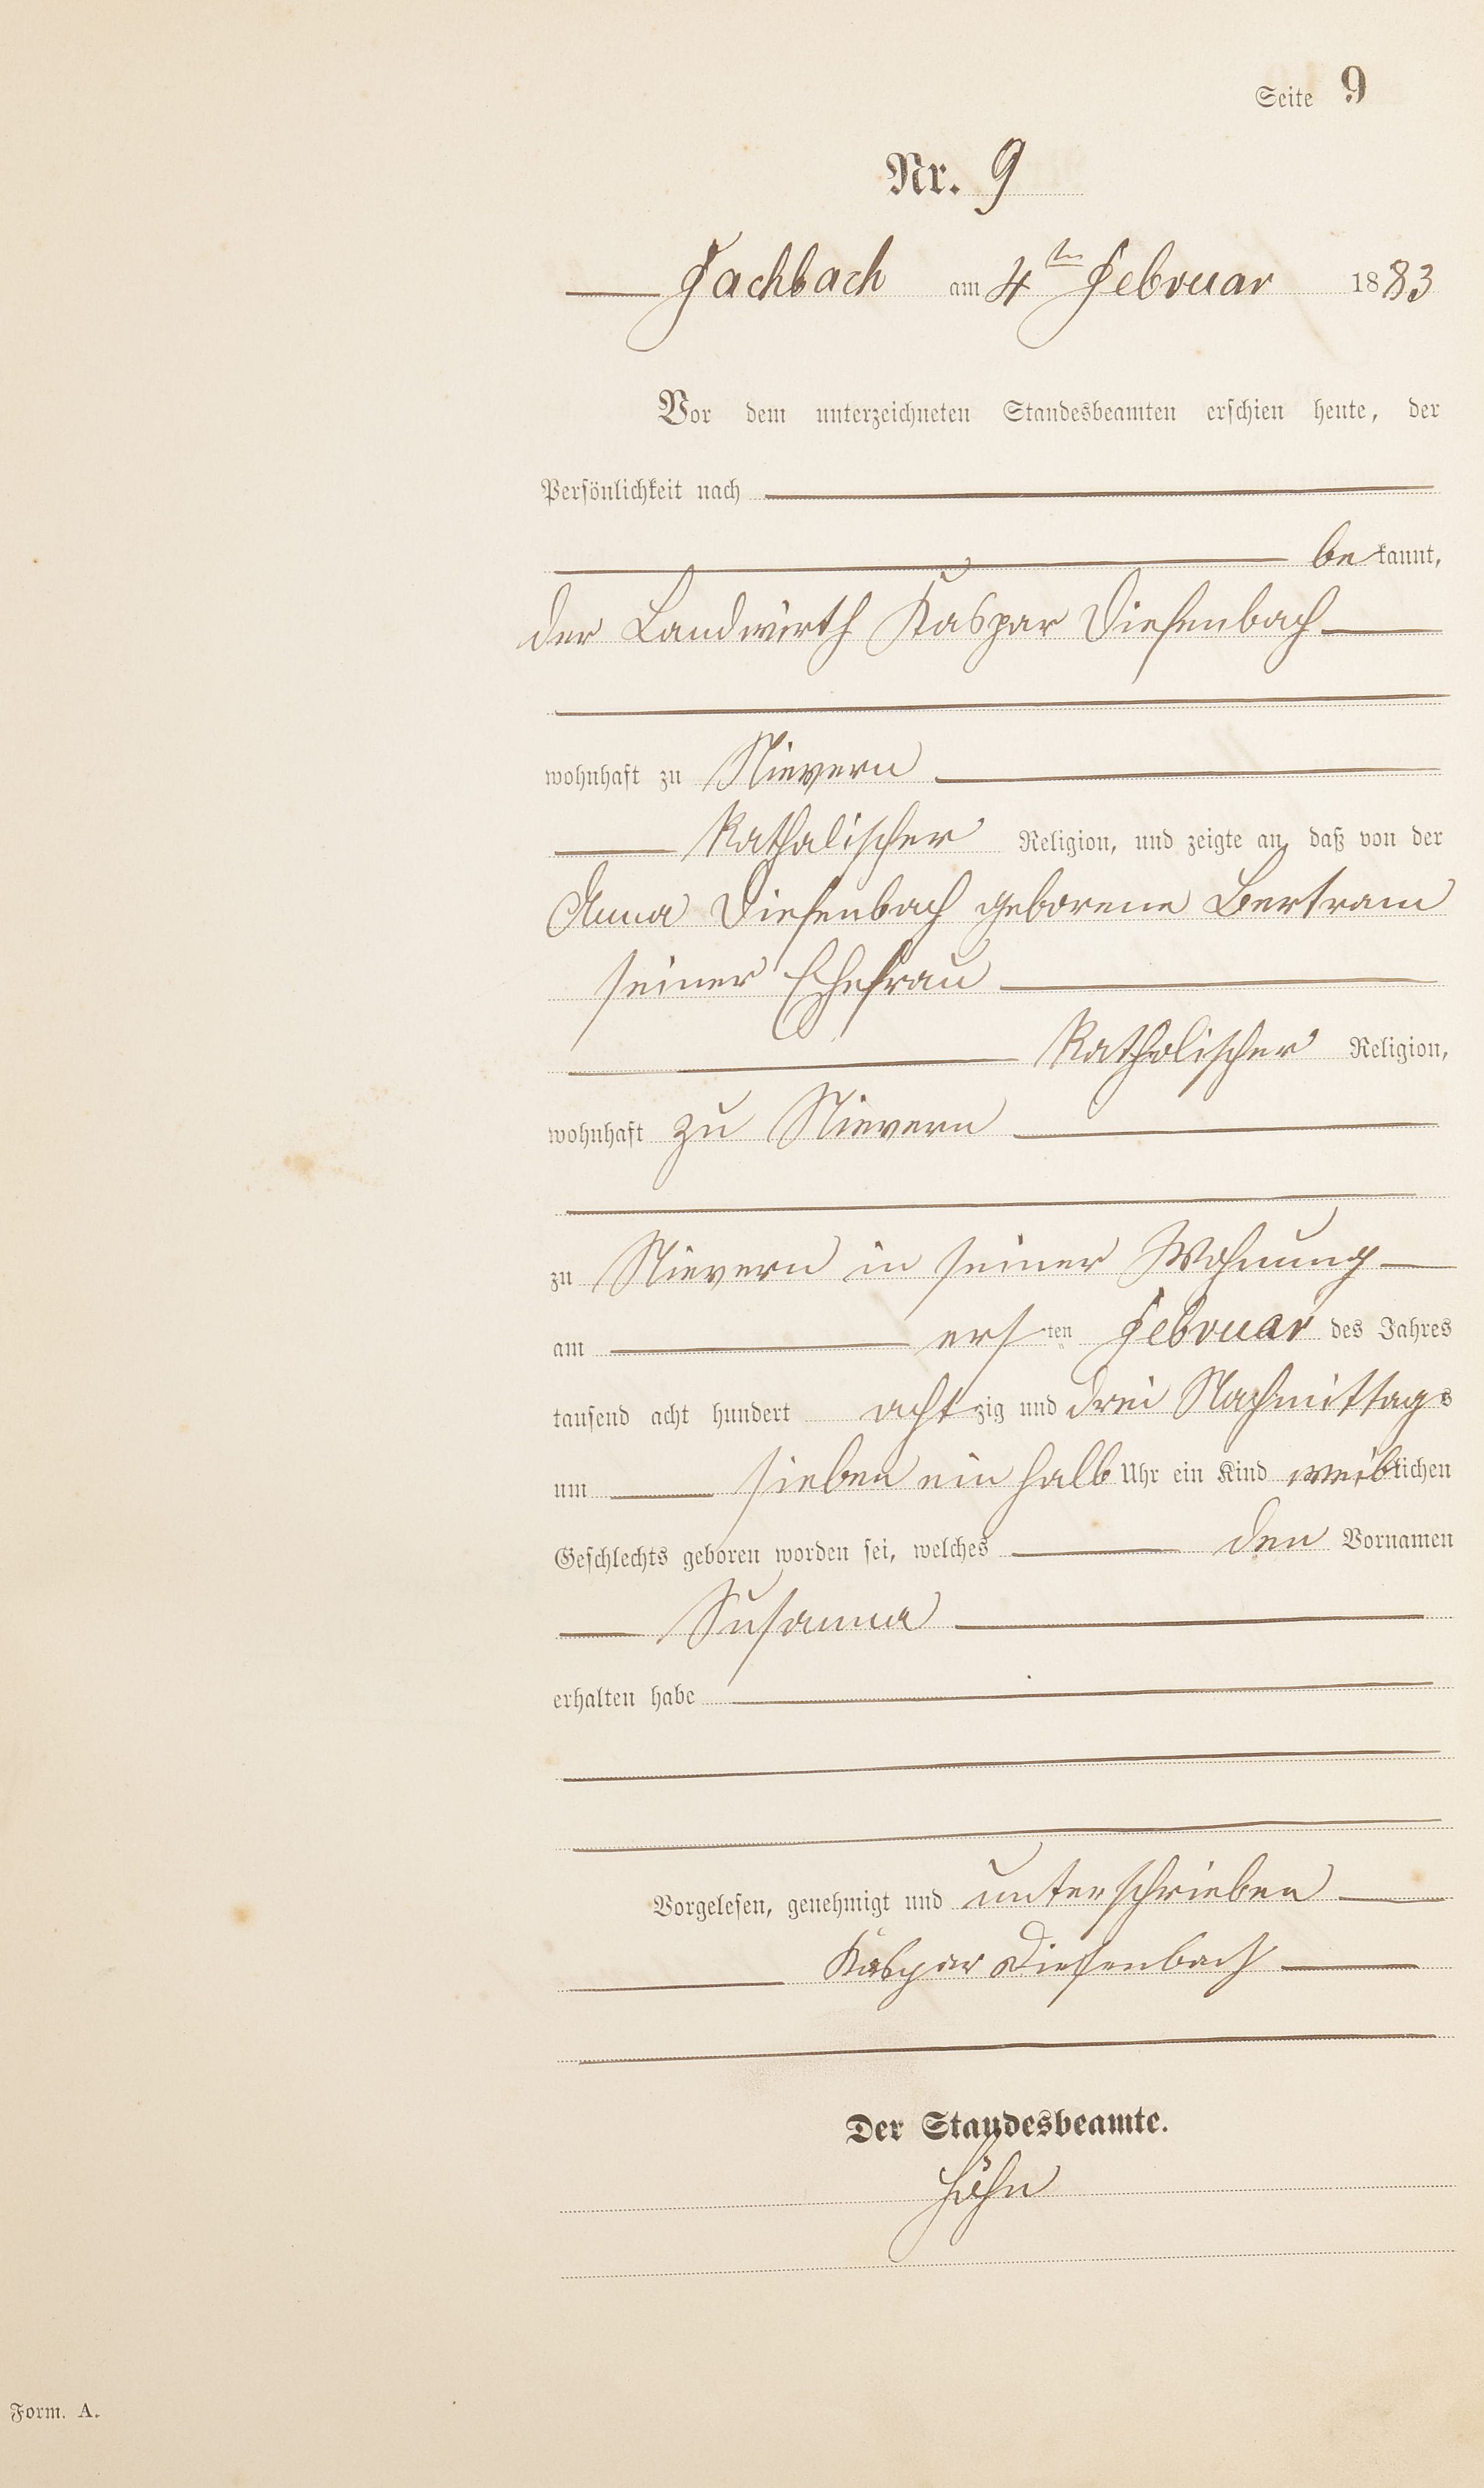 Seite 9
Nr. 9
Fachbach am 4ten Februar 1883
Vor dem unterzeichneten Standesbeamten erschien heute, der
Persönlichkeit nach
bekannt,
der Landwirth Kaspar Diefenbach
wohnhaft zu Nievern
katholischer Religion, und zeigte an, daß von der
Anna Diefenbach geborene Bertram
seiner Ehefrau
katholischer Religion,
wohnhaft zu Nievern
zu Nievern in seiner Wohnung
am ersten Februar des Jahres
tausend acht hundert achtzig und drei Nachmittags
um sieben ein halb Uhr ein Kind weiblichen
Geschlechts geboren worden sei, welches den Vornamen
Susanna
erhalten habe
Vorgelesen, genehmigt und unterschrieben
Kaspar Diefenbach
Der Standesbeamte.
Höhn
Form. A.